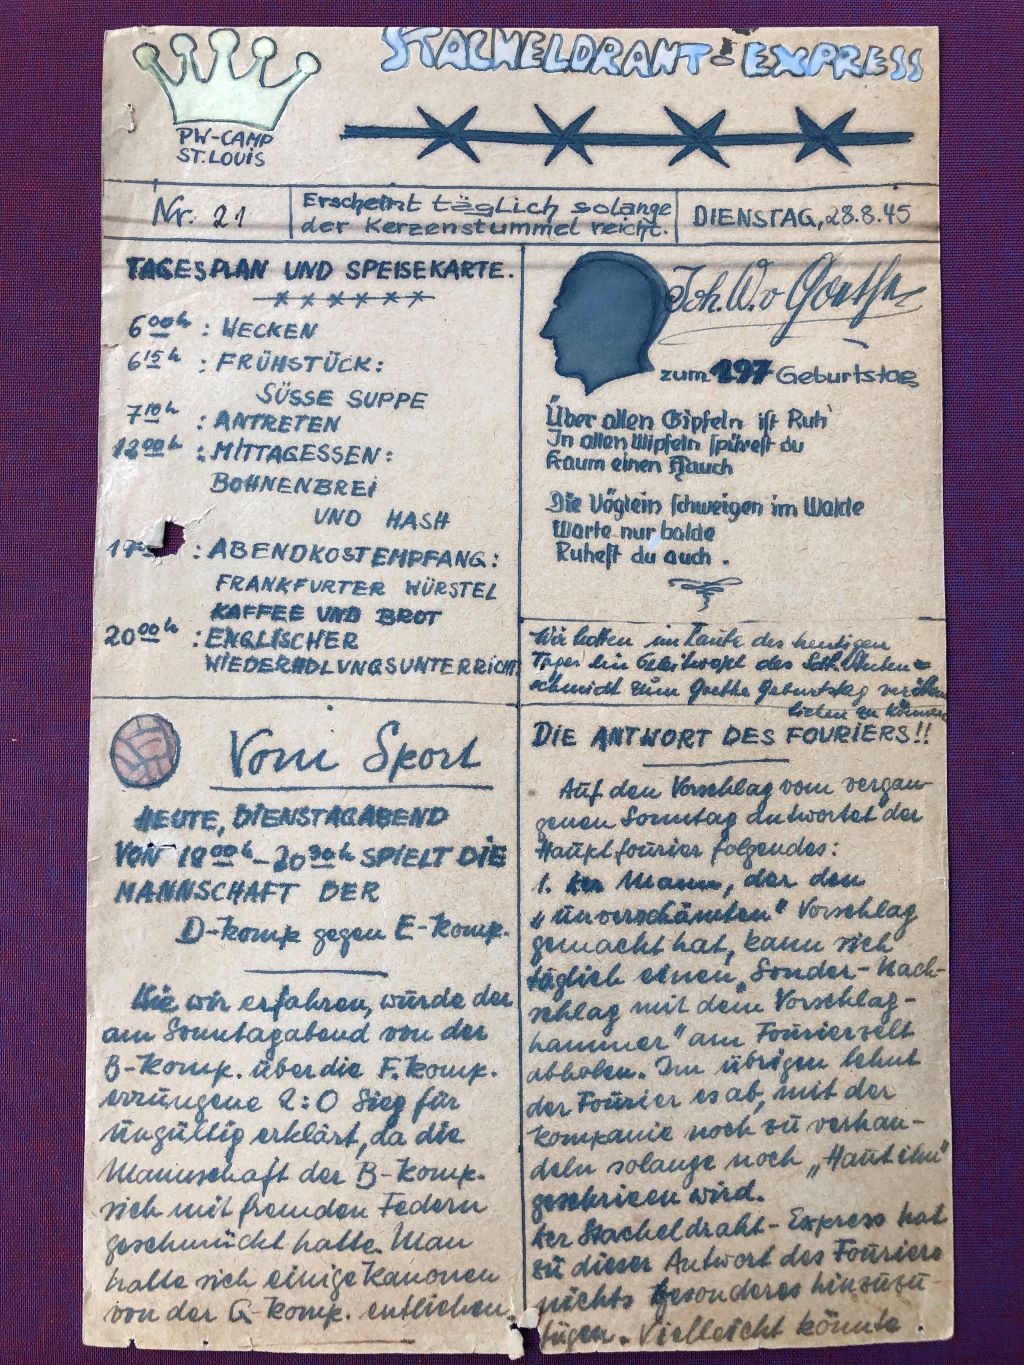 STACHELDRAHT-EXPRESS
PW-CAMP
ST. LOUIS
Nr. 21
Erscheint täglich solange
der Kerzenstummel reicht.
DIENSTAG, 28.8.45
TAGESPLAN UND SPEISEKARTE.
6 00 h : WECKEN
6 15 h : FRÜHSTÜCK:
SÜSSE SUPPE
7 10 h : ANTRETEN
12 00 h : MITTAGESSEN:
BOHNENBREI
UND HASH
: ABENDKOSTEMPFANG:
FRANKFURTER WÜRSTEL
KAFFEE UND BROT
20 00 h : ENGLISCHER
WIEDERHOLUNGSUNTERRICHT
Joh. W. v Goethe
zum 197 Geburtstag
Über allen Gipfeln ist Ruh'
In allen Wipfeln spürest du
Kaum einen Hauch
Die Vöglein schweigen im Walde
Warte nur balde
Ruhest du auch.
Wir hoffen im Laufe des heutigen
Tages ein des
schmidt zum Goethe Geburtstag veröffent
lichen zu können
Vom Sport
HEUTE, DIENSTAGABEND
VON 18 00 h - 20 30 h SPIELT DIE
MANNSCHAFT DER
D-Komp gegen E-Komp.
Wie wir erfahren, wurde der
am Sonntagabend von der
B-Komp. über die F.Komp.
errungene 2:0 Sieg für
ungültig erklärt, da die
Mannschaft der B-Komp.
sich mit fremden Federn
geschmückt hatte. Man
hatte sich einige Kanonen
von der G-Komp. entliehen
DIE ANTWORT DES FOURIERS!!
Auf den Vorschlag vom vergan-
genen Sonntag antwortet der
Hauptfourier folgendes:
1. Der Mann, der den
„unverschämten" Vorschlag
gemacht hat, kann sich
täglich einen „Sonder-Nach-
schlag mit dem Vorschlag-
hammer" am Fourierzelt
abholen. Im übrigen lehnt
der Fourier es ab, mit der
Kompanie noch zu verhan-
deln solange noch „Haut ihn"
geschrieen wird.
Der Stacheldraht-Express hat
zu dieser Antwort des Fouriers
nichts besonderes hinzuzu-
fügen. Vielleicht könnte